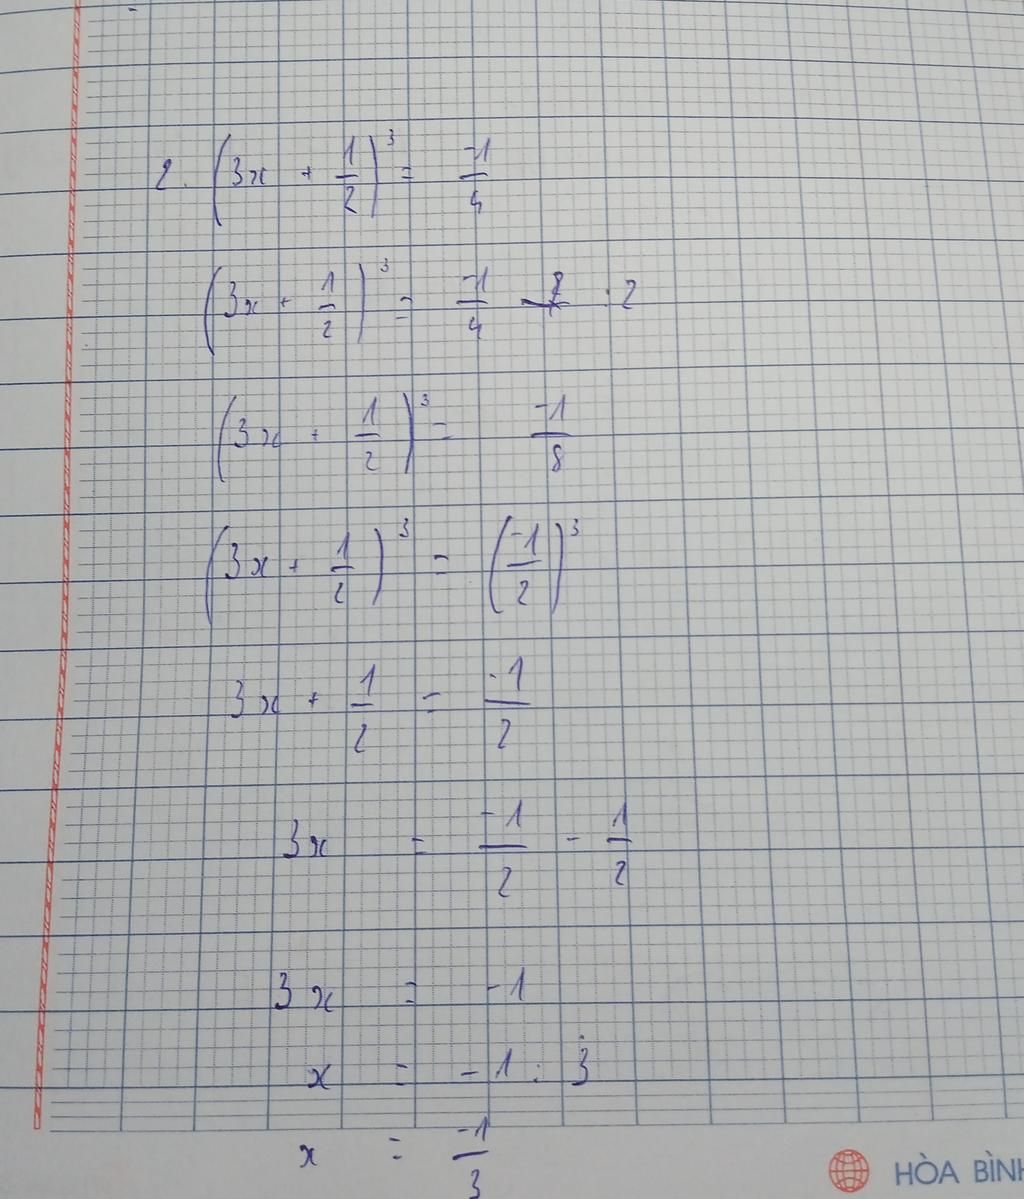 2. (3x + 1/2)³ = -1/4
(3x + 1/2)³ = -1/4 : 2
(3x + 1/2)³ = -1/8
(3x + 1/2)³ = (-1/2)³
3x + 1/2 = -1/2
3x = -1/2 - 1/2
3x = -1
x = -1 : 3
x = -1/3
HÒA BÌNH